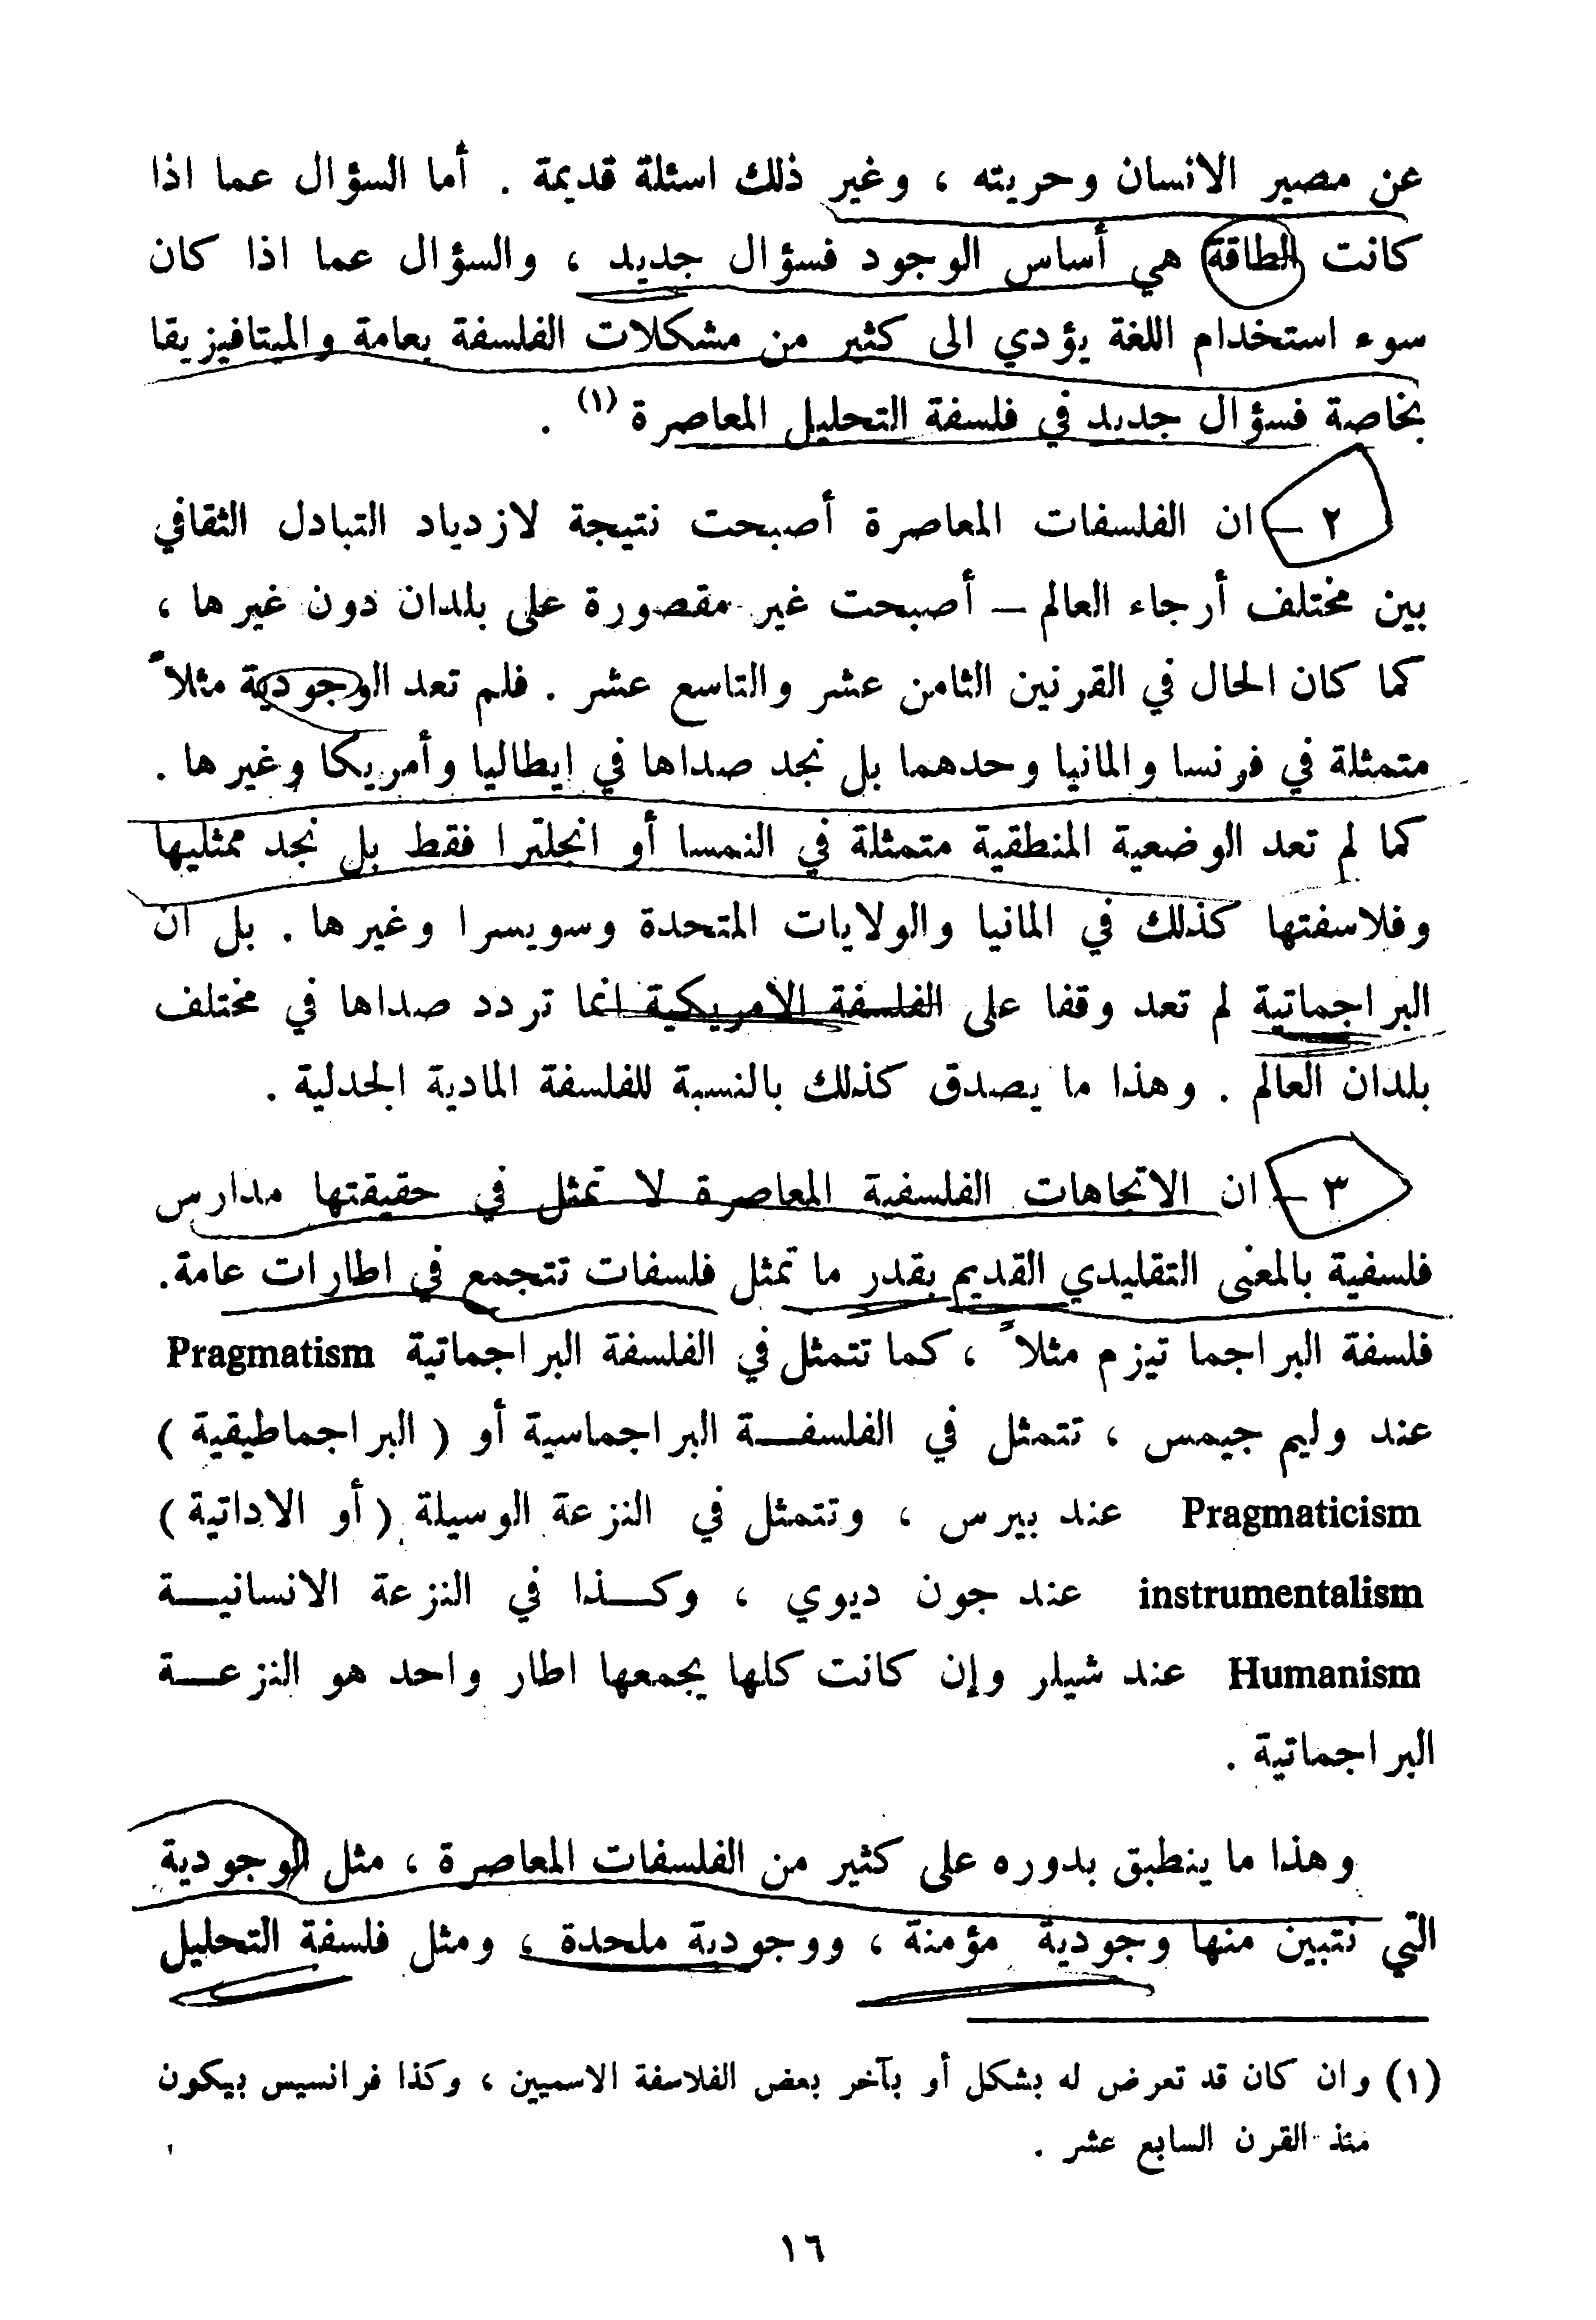 عن مصير الانسان وحريته ، وغير ذلك اسئلة قديمة . أما السؤال عما اذا
كانت الطاقة هي أساس الوجود فسؤال جديد ، والسؤال عما اذا كان
سوء استخدام اللغة يؤدي الى كثير من مشكلات الفلسفة بعامة والميتافيزيقا
بخاصة فسؤال جديد في فلسفة التحليل المعاصرة (١) .
٢ – ان الفلسفات المعاصرة أصبحت نتيجة لازدياد التبادل الثقافي
بين مختلف أرجاء العالم – أصبحت غير مقصورة على بلدان دون غيرها ،
كما كان الحال في القرنين الثامن عشر والتاسع عشر . فلم تعد الوجودية مثلاً
متمثلة في فرنسا والمانيا وحدهما بل نجد صداها في إيطاليا وأمريكا وغيرها .
كما لم تعد الوضعية المنطقية متمثلة في النمسا أو انجلترا فقط بل نجد ممثليها
وفلاسفتها كذلك في المانيا والولايات المتحدة وسويسرا وغيرها . بل ان
البراجماتية لم تعد وقفا على الفلسفة الامريكية انما تردد صداها في مختلف
بلدان العالم . وهذا ما يصدق كذلك بالنسبة للفلسفة المادية الجدلية .
٣ – ان الاتجاهات الفلسفية المعاصرة لا تمثل في حقيقتها مدارس
فلسفية بالمعنى التقليدي القديم بقدر ما تمثل فلسفات تتجمع في اطارات عامة.
فلسفة البراجما تيزم مثلاً ، كما تتمثل في الفلسفة البراجماتية Pragmatism
عند وليم جيمس ، تتمثل في الفلسفـة البراجماسية أو ( البراجماطيقية )
Pragmaticism عند بيرس ، وتتمثل في النزعة الوسيلة ( أو الاداتية )
instrumentalism عند جون ديوي ، وكـذا في النزعة الانسانيـة
Humanism عند شيلر وإن كانت كلها يجمعها اطار واحد هو النزعـة
البراجماتية .
وهذا ما ينطبق بدوره على كثير من الفلسفات المعاصرة ، مثل الوجودية
التي نتبين منها وجودية مؤمنة ، ووجودية ملحدة ، ومثل فلسفة التحليل
(١) وان كان قد تعرض له بشكل أو بآخر بعض الفلاسفة الاسميين ، وكذا فرانسيس بيكون
منذ القرن السابع عشر .
١٦